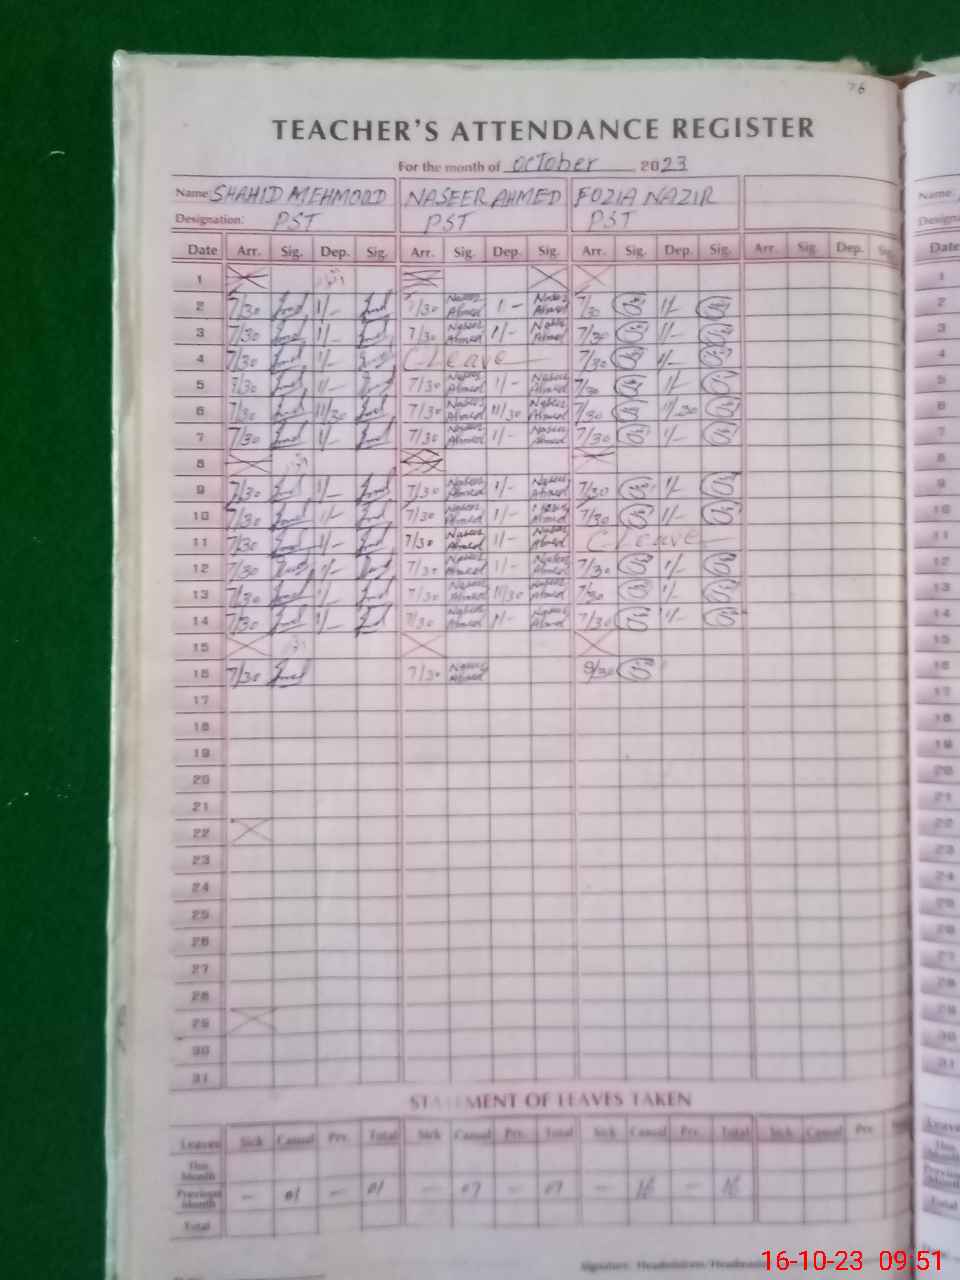 76
TEACHER'S ATTENDANCE REGISTER
For the month of october 2023
Name: SHAHID MEHMOOD NASEER AHMED FOZIA NAZIR Name:
Designation: PST PST PST
Date Arr. Sig. Dep. Sig. Arr. Sig. Dep. Sig. Arr. Sig. Dep. Sig. Arr. Sig. Dep. Sig. Date
1 1
2 7/30 1/- 7/30 Naseer Ahmed 1 - Naseer Ahmed 7/30 1/- 2
3 7/30 1/- 7/30 Naseer Ahmed 1/- Naseer Ahmed 7/30 1/- 3
4 7/30 1/- C-Leave 7/30 1/- 4
5 7/30 1/- 7/30 Naseer Ahmed 1/- Naseer Ahmed 7/30 1/- 5
6 7/30 11/30 7/30 Naseer Ahmed 11/30 Naseer Ahmed 7/30 11/30 6
7 7/30 1/- 7/30 Naseer Ahmed 1/- Naseer Ahmed 7/30 1/- 7
8 8
9 7/30 1/- 7/30 Naseer Ahmed 1/- Naseer Ahmed 7/30 1/- 9
10 7/30 1/- 7/30 Naseer Ahmed 1/- Naseer Ahmed 7/30 1/- 10
11 7/30 1/- 7/30 Naseer Ahmed 1/- Naseer Ahmed C-Leave 11
12 7/30 1/- 7/30 Naseer Ahmed 1/- Naseer Ahmed 7/30 1/- 12
13 7/30 1/- 7/30 Naseer Ahmed 11/30 Naseer Ahmed 7/30 1/- 13
14 7/30 1/- 7/30 Naseer Ahmed 1/- Naseer Ahmed 7/30 1/- 14
15 15
16 7/30 7/30 Naseer Ahmed 16
17 17
18 18
19 19
20 20
21 21
22 22
23 23
24 24
25 25
26 26
27 27
28 28
29 29
30 30
31 31
STATEMENT OF LEAVES TAKEN
Leaves Sick Casual Prv. Total Sick Casual Prv. Total Sick Casual Prv. Total Sick Casual Prv.
This Month
Previous Month - 01 - 01 - 07 - 07 - 16 - 16
Total
Signature: Headmistress/
16-10-23 09:51